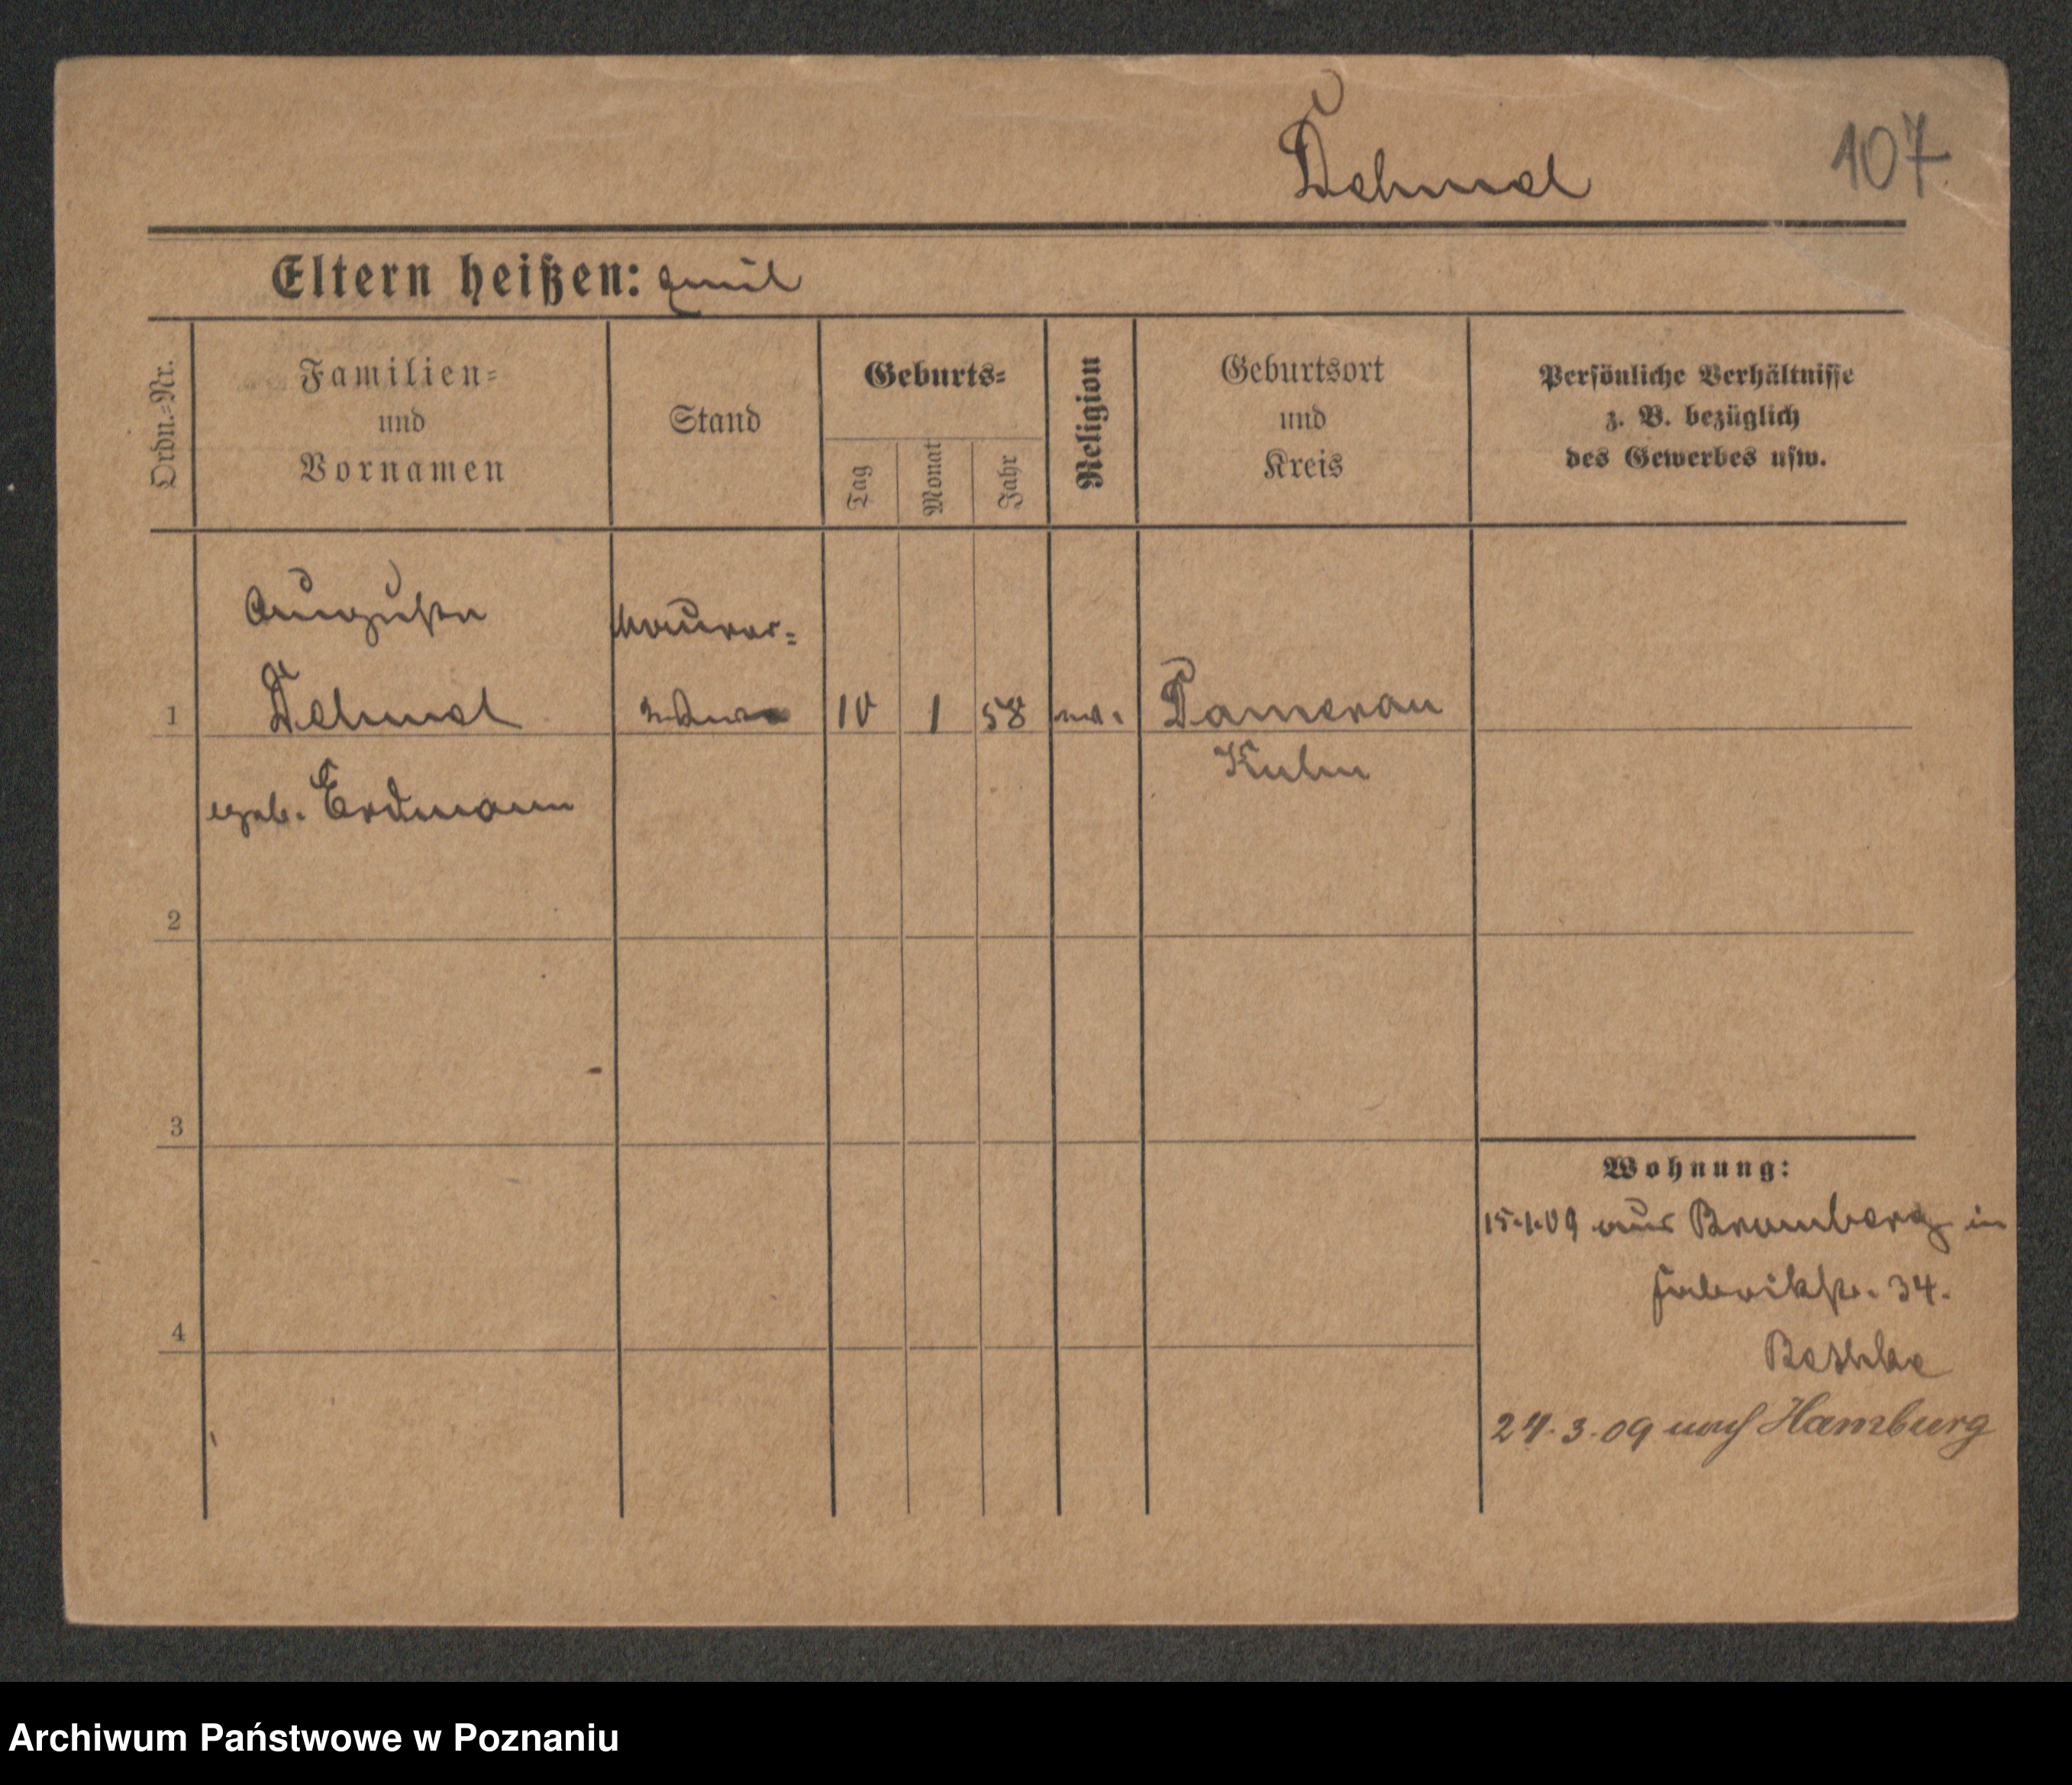 Dehmel
107
Eltern heißen: Emil
Ordn.=Nr.
Familien=
und
Vornamen
Stand
Geburts=
Tag
Monat
Jahr
Religion
Geburtsort
und
Kreis
Persönliche Verhältnisse
z. B. bezüglich
des Gewerbes usw.
Auguste
Maurer=
1
Dehmel
10
1
58
Damerau
Kulm
geb. Erdmann
2
3
4
Wohnung:
15.1.09 aus Bromberg in
Fabrikstr. 34.
Bethke
24.3.09 nach Hamburg
Archiwum Państwowe w Poznaniu